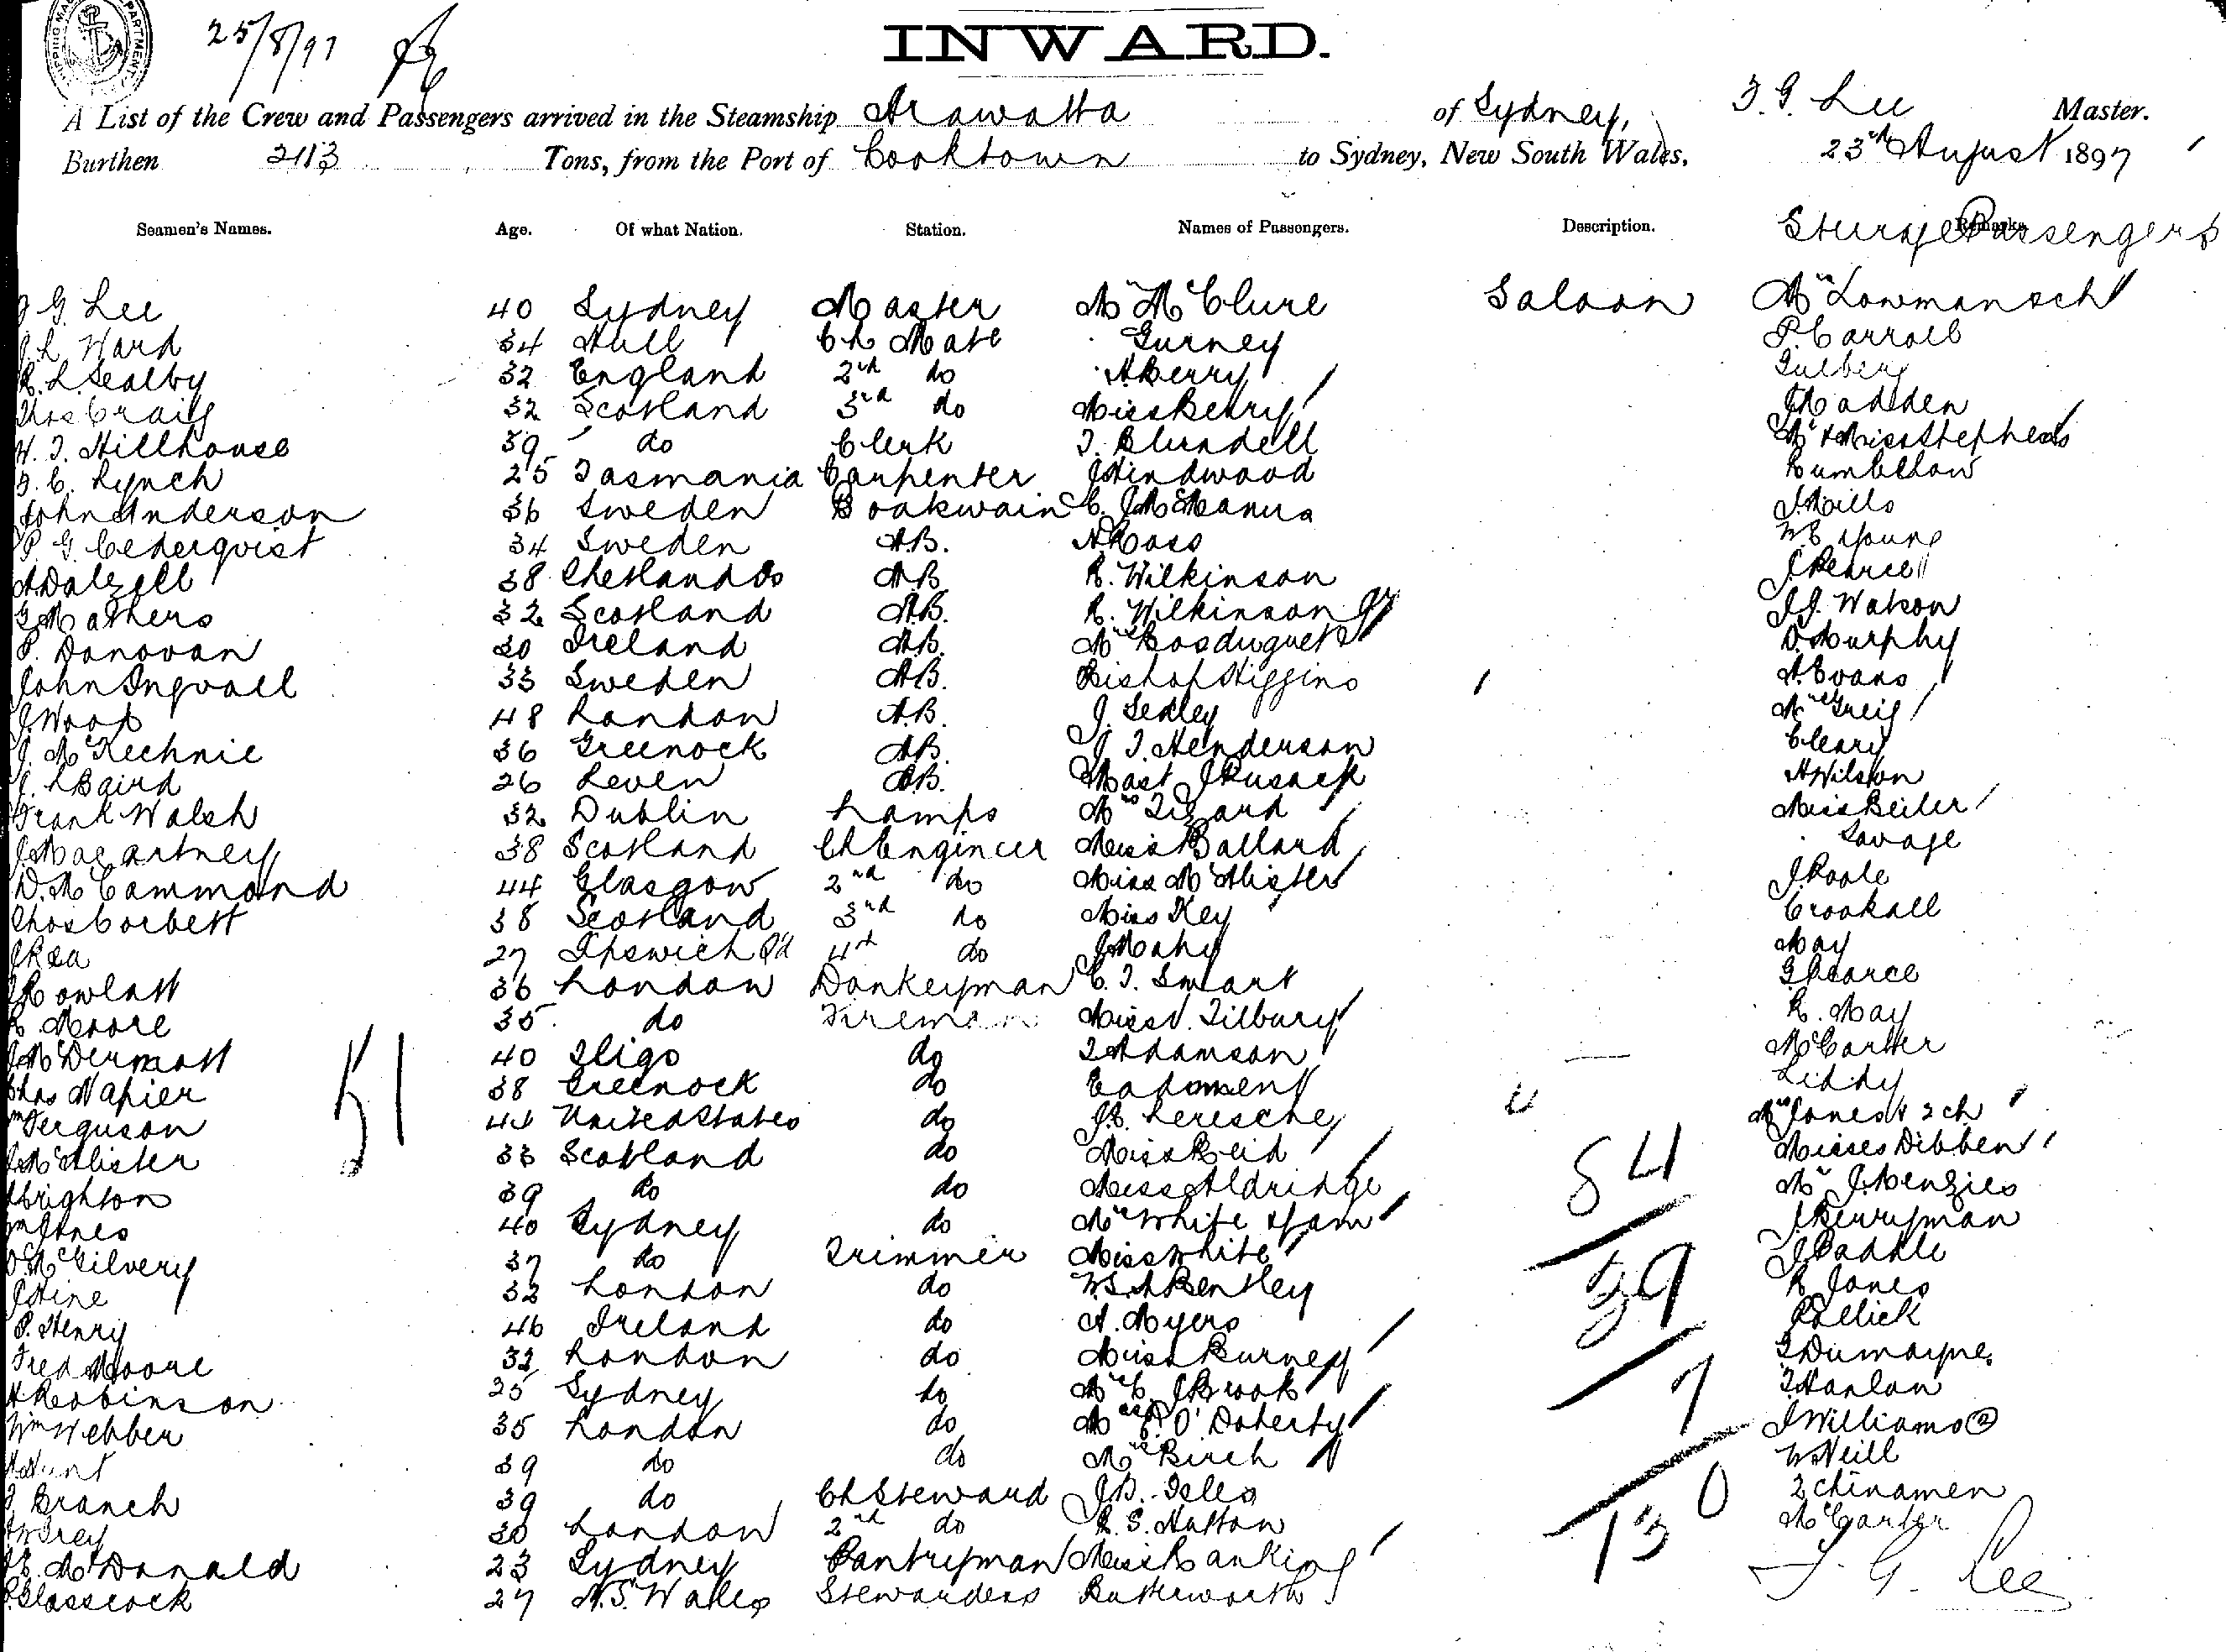 25/8/97
INWARD.
A List of the Crew and Passengers arrived in the Steamship Arawatta of Sydney, J. G. Lee Master.
Burthen 2113 Tons, from the Port of Cooktown to Sydney, New South Wales, 23rd August 1897
Seamen's Names. Age. Of what Nation. Station. Names of Passengers. Description. Remarks. Steerage Passengers
J G. Lee 40 Sydney Master Mr McClure Saloon Lowman
J. L. Ward 34 Hull Ch Mate Gurney P. Carroll
R. L. Sealby 32 England 2nd do A Berry
Thos Craig 32 Scotland 3rd do Miss Berry J Madden
H. J. Hillhouse 39 do Clerk J. Blundell Mr & Miss Stephens
J. C. Lynch 25 Tasmania Carpenter J Hindwood Rumbelow
John Anderson 36 Sweden Boatswain C. J McManus J Mills
P G Cederqvist 34 Sweden A.B. A Ross W E Young
A Dalzell 38 Shetland Is A.B. R. Wilkinson J Pearce
G Mathers 32 Scotland A.B. R. Wilkinson Jr J J. Watson
P. Donovan 30 Ireland A.B. Mrs Bosduquet D. Murphy
John Ingvall 33 Sweden A.B. Bishop Higgins A Evans
J. Wood 48 London A.B. J. Sedley Mrs Greig
J. McKechnie 36 Greenock A.B. J T. Henderson Cleary
J. L Baird 26 Leven A.B. Mast J Cusack A Wilson
Frank Walsh 32 Dublin Lamps Mrs Tizard Miss Beiler
J Macartney 38 Scotland Ch Engineer Miss Ballard Savage
D. McCammond 44 Glasgow 2nd do Miss McAlister J Poole
Chas Corbett 38 Scotland 3rd do Miss Key Crookall
J Rea 27 Ipswich Qd 4th do J Mahy May
J Rowlatt 36 London Donkeyman C. J. Smart G Pearce
R. Moore 35 do Fireman Miss V. Tilbury R. May
J McDermott 40 Sligo do J Adamson McCarter
Chas Napier 38 Greenock do Liddy
Wm Ferguson 44 United States do J. C. Leresche Mrs Jones & 2 ch
J McAlister 33 Scotland do Miss Reid Misses Dibben
Brighton 39 do do Miss Aldridge Mr J Menzies
Wm Innes 40 Sydney do Mr White & fam J Berryman
D. McGilvery 37 do Trimmer Miss White J Paddle
J Hine 32 London do W. S. A Bentley R Jones
P. Henry 46 Ireland do A. Myers
Fred Moore 32 London do Miss Burney G Dumayne
A Robinson 25 Sydney do Mr C. J Brook J Hanlon
Wm Webber 35 London do O'Doherty J Williams (2)
Hunt 39 do do Mrs Birch W Neill
J. Branch 39 do Ch Steward J. B. Isles 2 Chinamen
Grey 30 London 2nd do R. S. Hutton McCarter
McDonald 23 Sydney Pantryman Miss Ranking J. G. Lee
Glasscock 27 N. S. Wales Stewardess Butterworth
51
54
39
7
130